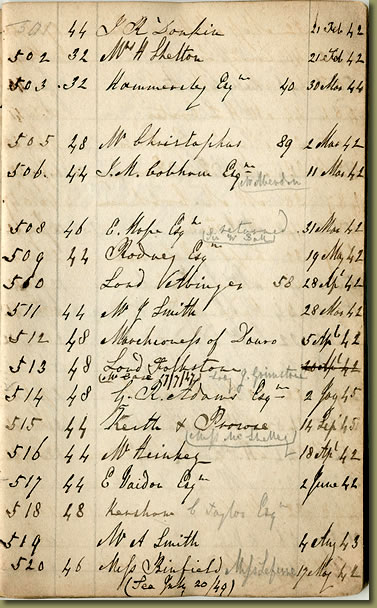 501 44 J. R. Donkin 21 Feb 42
502 32 Mr H Shelton 21 Feb 42
503 .32 Hammersley Esqre 40 30 Mar 44
505 48 Mr Christophas 89 2 Mar 42
506. 44 J. M. Cobham Esqre 11 Mar 42
508 46 E. Hope Esqre returned 31 Mar 42
509 44 Rodney Esqre 19 May 42
510 Lord 58 28 Apl 42
511 44 Mr J Smith 28 Mar 42
512 48 Marchioness of Douro 5 Apl 42
513 48 Lord Folkstone
514 48 G. R. Adams Esqre 2 Jay 45
515 44 Keith & Prowse 14 Sep 45
516 44 Mr Heinkey 18 Apl 42
517 44 E Esqre 2 June 42
518 48 Kershaw C Taylor Esqre
519 Mr A Smith 4 Aug 43
520 46 Miss Binfield 17 May 42
(See July 20/49)